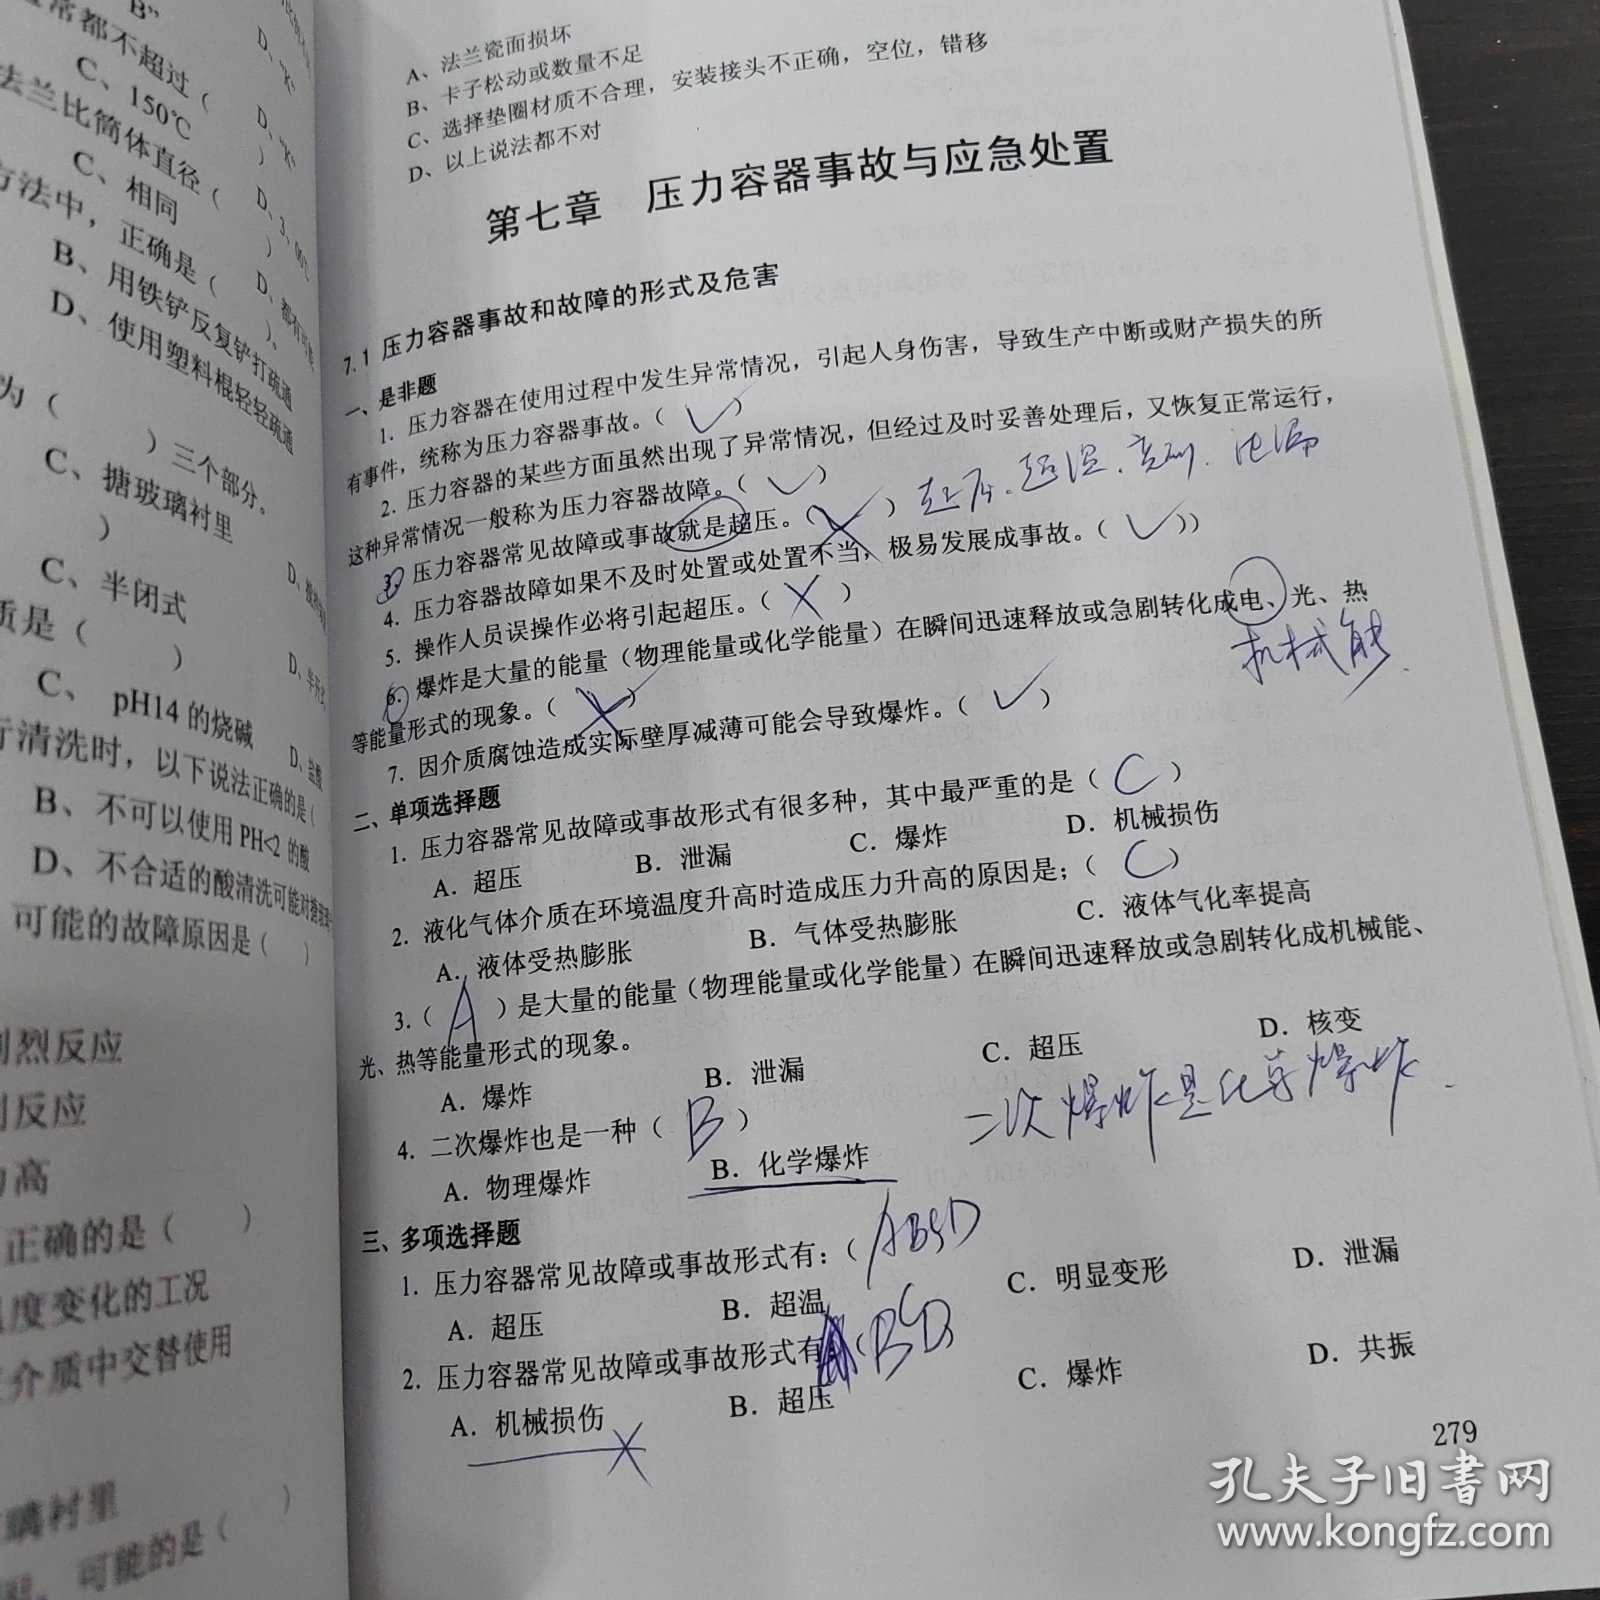 B”
常都不超过（
C、150℃
D、“K”
法兰比筒体直径（
C、相同
D、“K”
方法中，正确是（
B、用铁铲反复铲打疏通
D、使用塑料棍轻轻疏通
D、都有可能
）。
为（
）三个部分。
C、搪玻璃衬里
）
C、半闭式
质是（
）
C、 pH14 的烧碱
D、盐酸
行清洗时，以下说法正确的是（
B、不可以使用 PH<2 的酸
D、不合适的酸清洗可能对搪玻璃
可能的故障原因是（ ）
剧烈反应
剧反应
高
正确的是（ ）
温度变化的工况
介质中交替使用
璃衬里
可能的是（ ）
A、法兰瓷面损坏
B、卡子松动或数量不足
C、选择垫圈材质不合理，安装接头不正确，空位，错移
D、以上说法都不对
第七章 压力容器事故与应急处置
7.1 压力容器事故和故障的形式及危害
一、是非题
1. 压力容器在使用过程中发生异常情况，引起人身伤害，导致生产中断或财产损失的所
有事件，统称为压力容器事故。（ ✓ ）
2. 压力容器的某些方面虽然出现了异常情况，但经过及时妥善处理后，又恢复正常运行，
这种异常情况一般称为压力容器故障。（ ✓ ）
3. 压力容器常见故障或事故就是超压。（ X ） 超压、超温、变形、泄漏
4. 压力容器故障如果不及时处置或处置不当，极易发展成事故。（ ✓ ））
5. 操作人员误操作必将引起超压。（ X ）
6. 爆炸是大量的能量（物理能量或化学能量）在瞬间迅速释放或急剧转化成电、光、热
机械能
等能量形式的现象。（ X ）
7. 因介质腐蚀造成实际壁厚减薄可能会导致爆炸。（ ✓ ）
二、单项选择题
1. 压力容器常见故障或事故形式有很多种，其中最严重的是（ C ）
A. 超压 B. 泄漏 C. 爆炸 D. 机械损伤
2. 液化气体介质在环境温度升高时造成压力升高的原因是；（ C ）
A. 液体受热膨胀 B. 气体受热膨胀 C. 液体气化率提高
3.（ A ）是大量的能量（物理能量或化学能量）在瞬间迅速释放或急剧转化成机械能、
光、热等能量形式的现象。
A. 爆炸 B. 泄漏 C. 超压 D. 核变
4. 二次爆炸也是一种（ B ） 二次爆炸是化学爆炸.
A. 物理爆炸 B. 化学爆炸
三、多项选择题
1. 压力容器常见故障或事故形式有：（ ABCD
A. 超压 B. 超温 C. 明显变形 D. 泄漏
2. 压力容器常见故障或事故形式有（ BCD
A. 机械损伤 B. 超压 C. 爆炸 D. 共振
279
孔夫子旧书网
www.kongfz.com